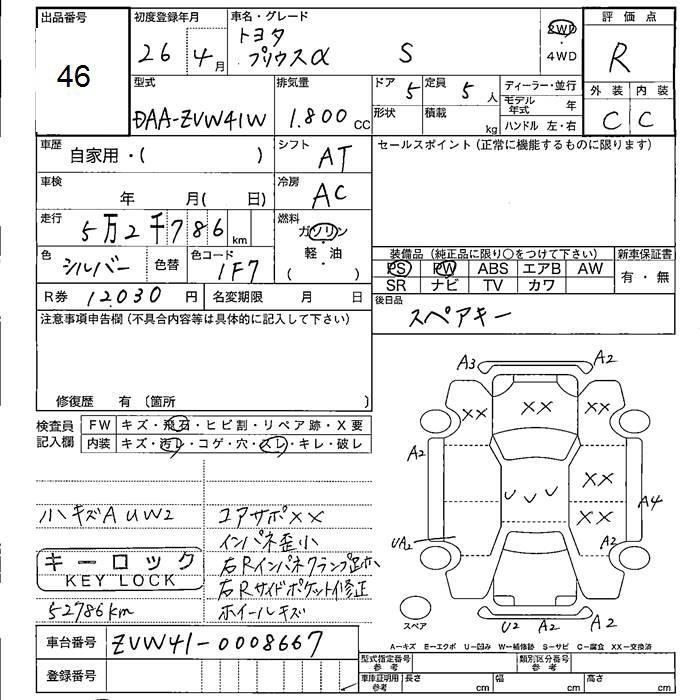 出品番号
46
初度登録年月
26年4月
車名・グレード
トヨタ
プリウスα S
2WD
・
4WD
評価点
R
外装 内装
C C
型式
DAA-ZVW41W
排気量
1.800 CC
ドア 5
定員 5人
形状
積載 kg
ディーラー・並行
モデル年式 年
ハンドル 左・右
車歴
自家用・( )
シフト
AT
セールスポイント(正常に機能するものに限ります)
車検
年 月( 日)
冷房
AC
走行
5万2千786km
燃料
ガソリン
・
軽・油
( )
色
シルバー
色替
色コード
1F7
装備品(純正品に限り○をつけて下さい)
新車保証書
PS PW ABS エアB AW
SR ナビ TV カワ
有・無
R券 12030円
名変期限 月 日
後日品
スペアキー
注意事項申告欄(不具合内容等は具体的に記入して下さい)
修復歴 有〔箇所 〕
検査員記入欄
FW キズ・飛石・ヒビ割・リペア跡・X要
内装 キズ・汚レ・コゲ・穴・スレ・キレ・破レ
小キズAUW2
コアサポXX
インパネ歪小
キーロック
KEY LOCK
右Rインパネクランプ跡小
右Rサイドポケット修正
52786km
ホイールキズ
車台番号
ZVW41-0008667
登録番号
A3 A2
XX XX XX
A2
XX
A4
XX
UA2
A2
スペア
U2 A2 A2
A-キズ E-エクボ U-凹み W-補修跡 S-サビ C-腐食 XX-交換済
型式指定番号 参考
類別区分番号 参考
車庫証明用 参考
長さ cm
幅 cm
高さ cm